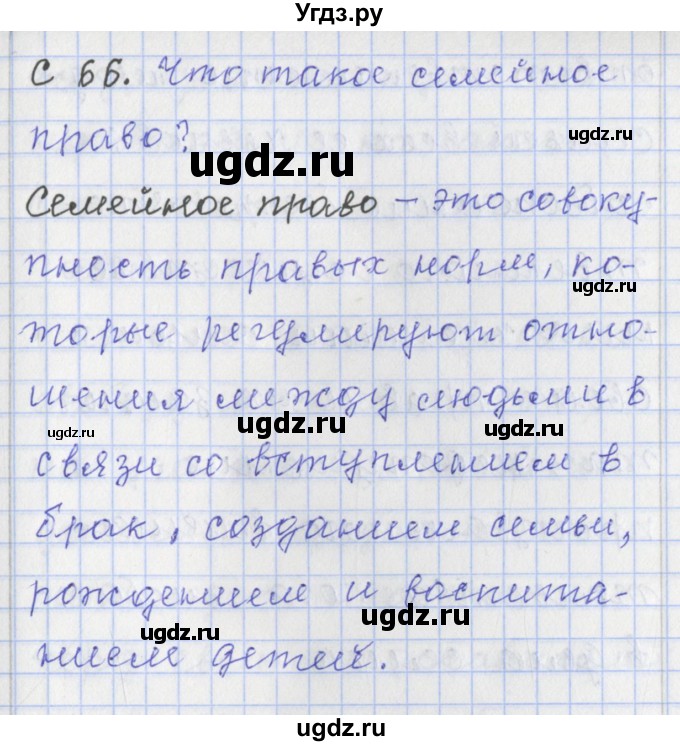 Угдз.ру
С 66. Что такое семейное
ugdz.ru
право?
ugdz.ru
Семейное право – это совоку-
пность правых норм, ко-
ugdz.ru
ugdz.ru
торые регулируют отно-
шения между людьми в
ugdz.ru
ugdz.ru
ugdz.ru
связи со вступлением в
брак, созданием семьи,
рождением и воспита-
ugdz.ru
ugdz.ru
нием детей.
ugdz.ru